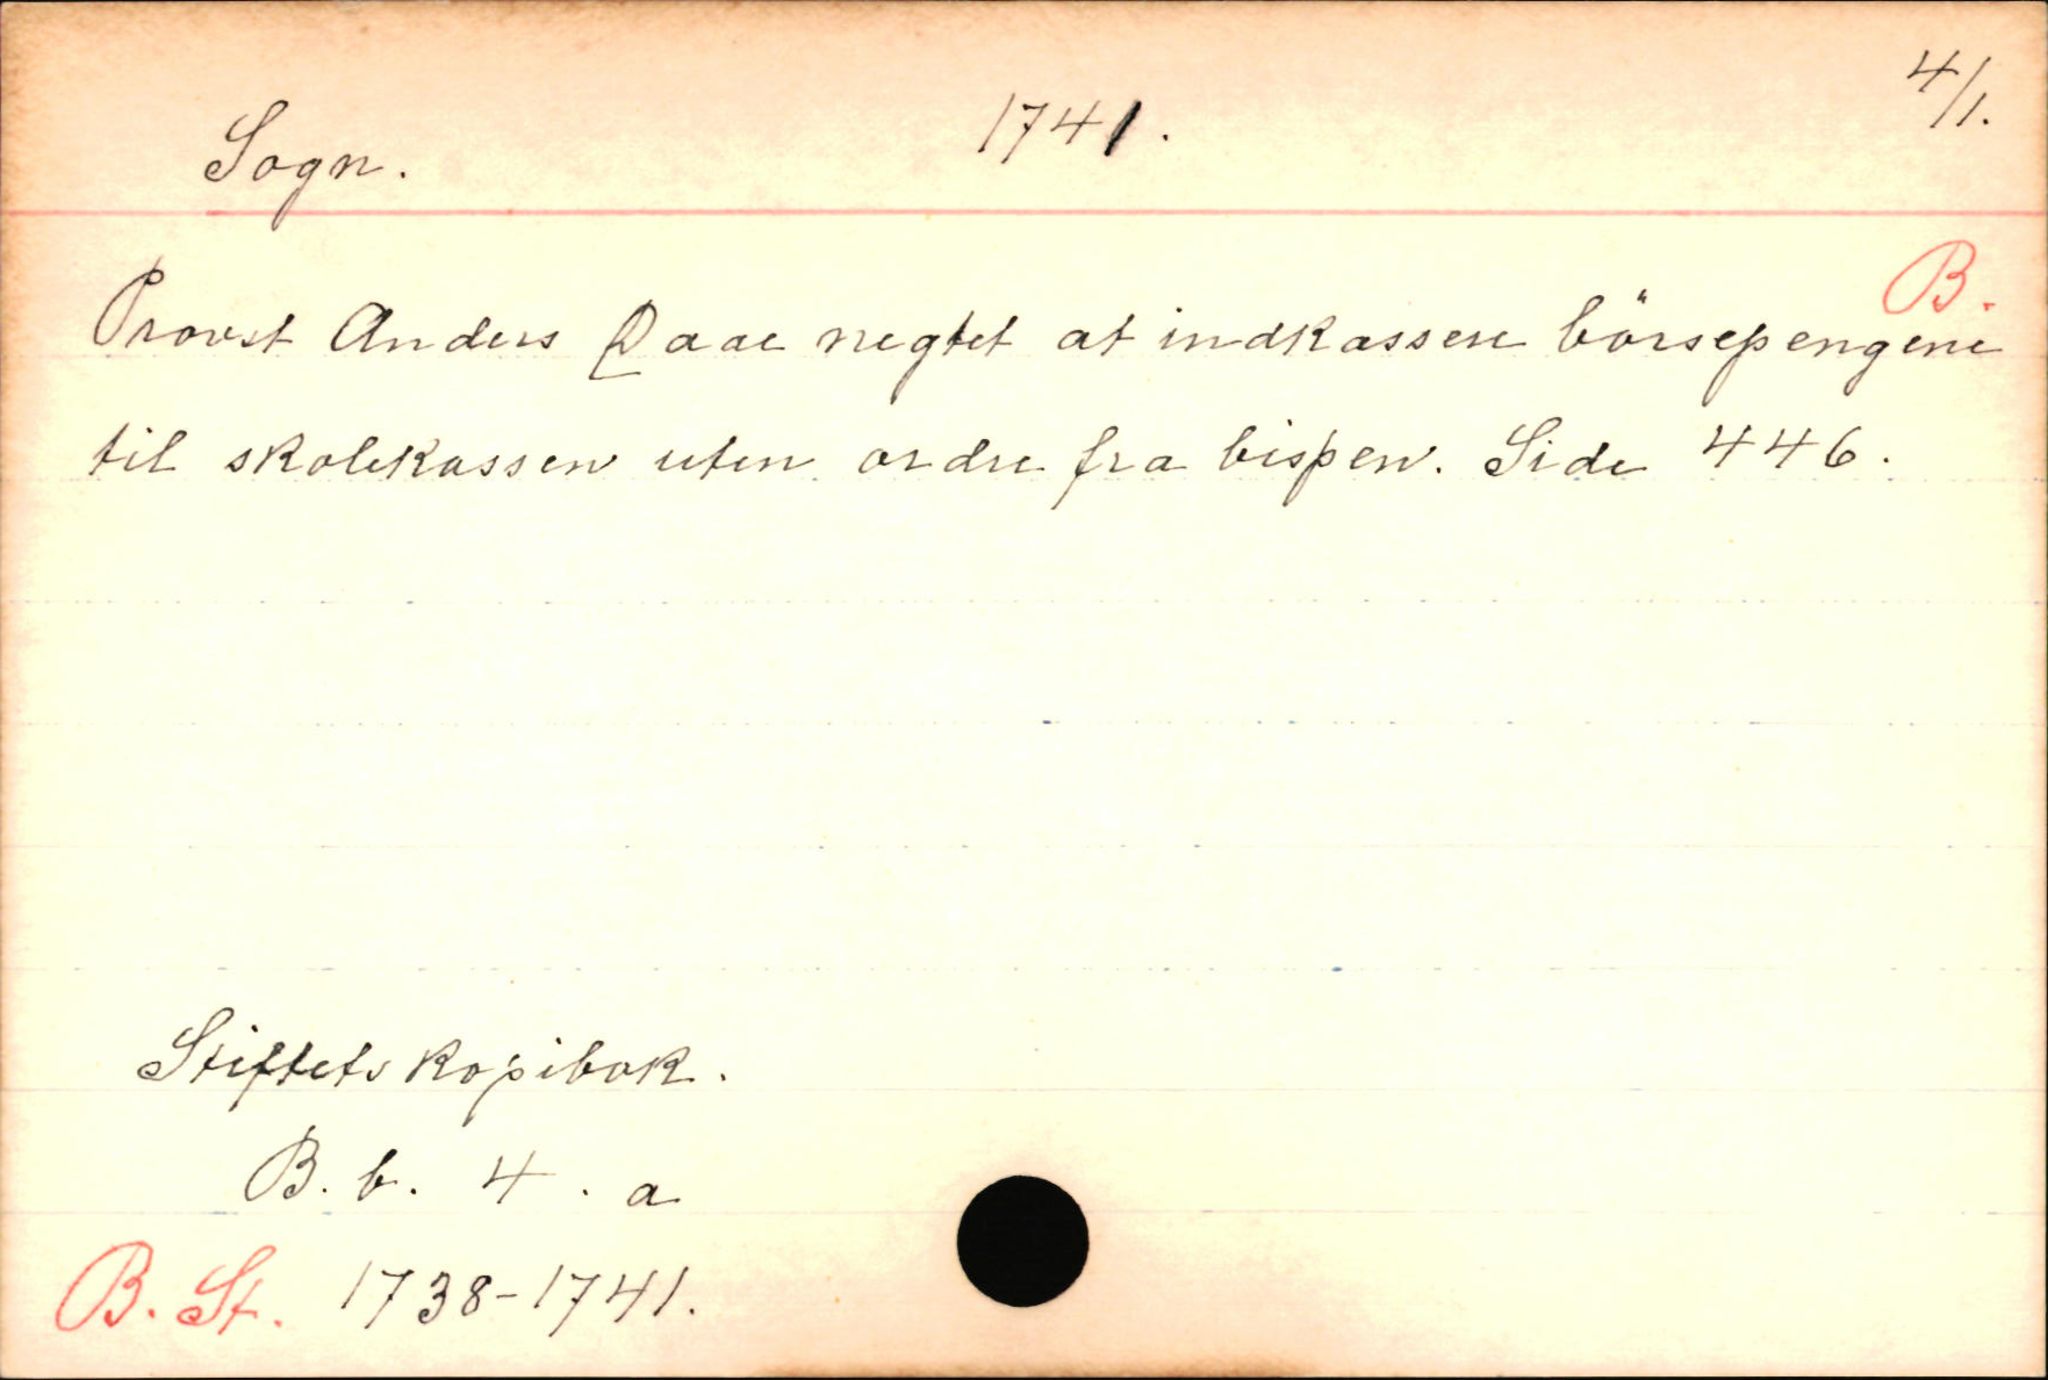 Sogn. 1741. 4/1.
B.
Provst Anders Daae negtet at indkassere börsepengene
til skolekassen uten ordre fra bispen. Side 446.
Stiftets kopibok.
B. b. 4. a
B. St. 1738-1741.